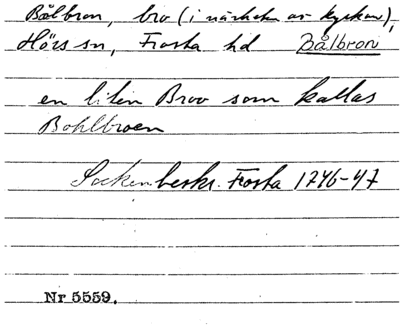 Bålbron, bro (i närheten av kyrkan),
Hörs sn, Frosta hd Bålbron
en liten Broo som kallas
Bohlbroen
Sockenbeskr. Frosta 1746-47
Nr 5559.